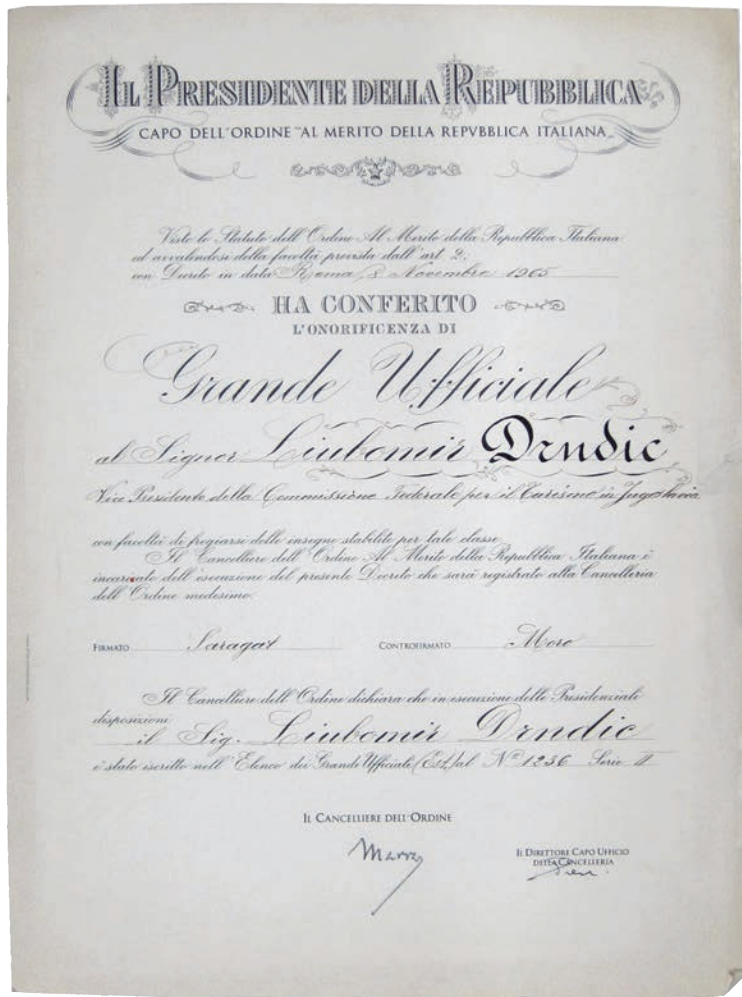 IL PRESIDENTE DELLA REPUBBLICA
CAPO DELL'ORDINE "AL MERITO DELLA REPVBBLICA ITALIANA„
Visto lo Statuto dell'Ordine Al Merito della Repubblica Italiana
ed avvalendosi della facoltà prevista dall'art 2;
con Decreto in data Roma, 8 Novembre 1965
HA CONFERITO
L'ONORIFICENZA DI
Grande Ufficiale
al Signor Liubomir Drndic
Vice Presidente della Commissione Federale per il Turismo in Jugoslavia
con facoltà di fregiarsi delle insegne stabilite per tale classe
Il Cancelliere dell'Ordine Al Merito della Repubblica Italiana è
incaricato dell'esecuzione del presente Decreto che sarà registrato alla Cancelleria
dell'Ordine medesimo.
FIRMATO Saragat CONTROFIRMATO Moro
Il Cancelliere dell'Ordine dichiara che in esecuzione delle Presidenziali
disposizioni
il Sig. Liubomir Drndic
è stato iscritto nell'Elenco dei Grandi Ufficiali (Est.) al N° 1236 Serie II
IL CANCELLIERE DELL'ORDINE
IL DIRETTORE CAPO UFFICIO
DELLA CANCELLERIA